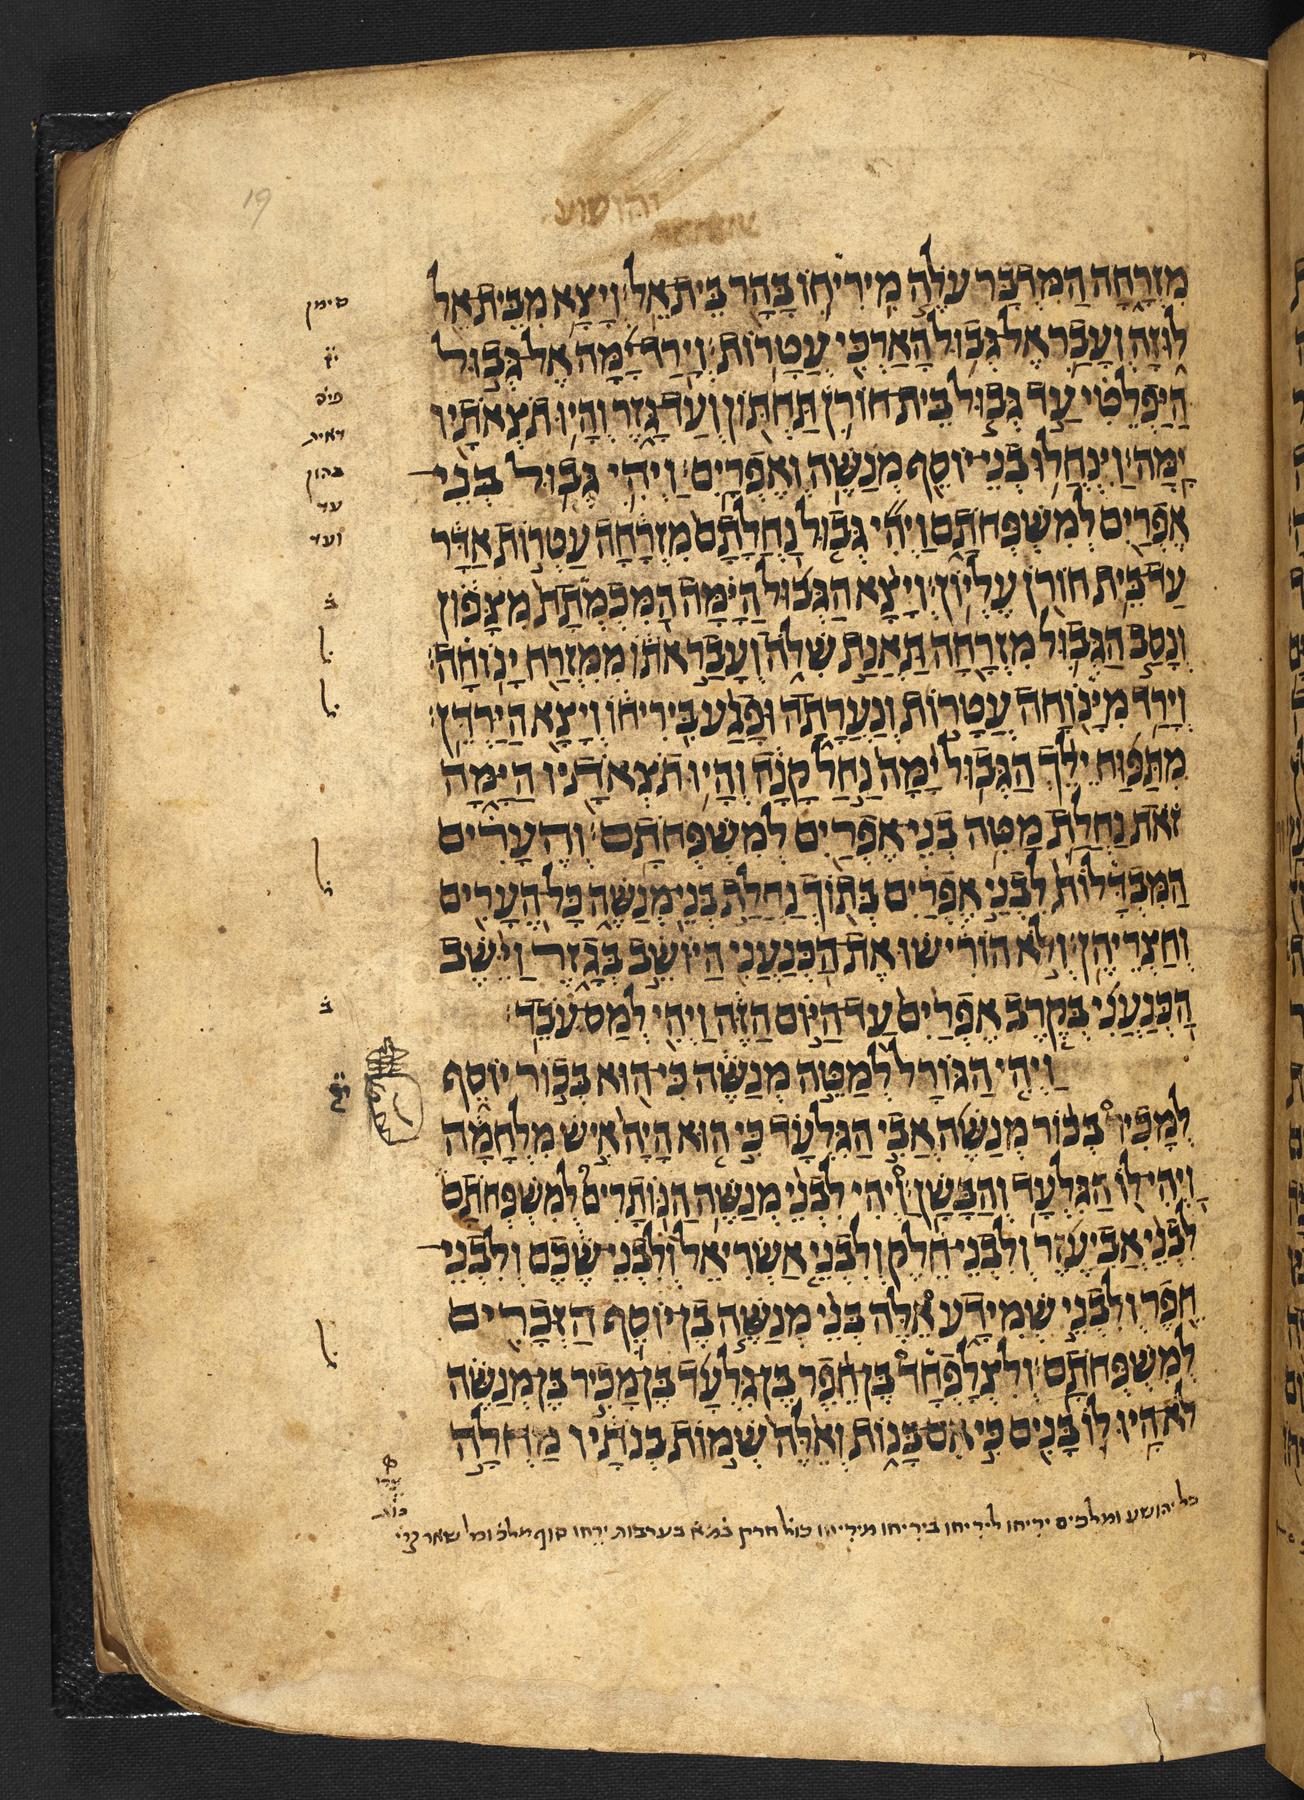 יהושע
מזרחה המדבר עלה מיריחו בהר בית אל ויצא מבית אל
לוזה ועבר אל גבול הארכי עטרות וירד ימה אל גבול
היפלטי עד גבול בית חורן תחתון ועד גזר והיו תצאתיו
ימה וינחלו בני יוסף מנשה ואפרים ויהי גבול בני
אפרים למשפחתם ויהי גבול נחלתם מזרחה עטרות אדר
עד בית חורן עליון ויצא הגבול הימה המכמתת מצפון
ונסב הגבול מזרחה תאנת שלה ועבר אתו ממזרח ינוחה
וירד מינוחה עטרות ונערתה ופגע ביריחו ויצא הירדן
מתפוח ילך הגבול ימה נחל קנה והיו תצאתיו הימה
זאת נחלת מטה בני אפרים למשפחתם והערים
המבדלות לבני אפרים בתוך נחלת בני מנשה כל הערים
וחצריהן ולא הורישו את הכנעני היושב בגזר וישב
הכנעני בקרב אפרים עד היום הזה ויהי למס עבד
ויהי הגורל למטה מנשה כי הוא בכור יוסף
למכיר בכור מנשה אבי הגלעד כי הוא היה איש מלחמה
ויהי לו הגלעד והבשן ויהי לבני מנשה הנותרים למשפחתם
לבני אביעזר ולבני חלק ולבני אשריאל ולבני שכם ולבני
חפר ולבני שמידע אלה בני מנשה בן יוסף הזכרים
למשפחתם ולצלפחד בן חפר בן גלעד בן מכיר בן מנשה
לא היו לו בנים כי אם בנות ואלה שמות בנתיו מחלה
כל יהושע ומלכים יריחו ליריחו ביריחו מיריחו חרק במא בערבות ירחו סוף מלכ וכל שאר
סימן
דאית
בהון
עד
ועד
ב
ל
ל
ל
ב
ל
19